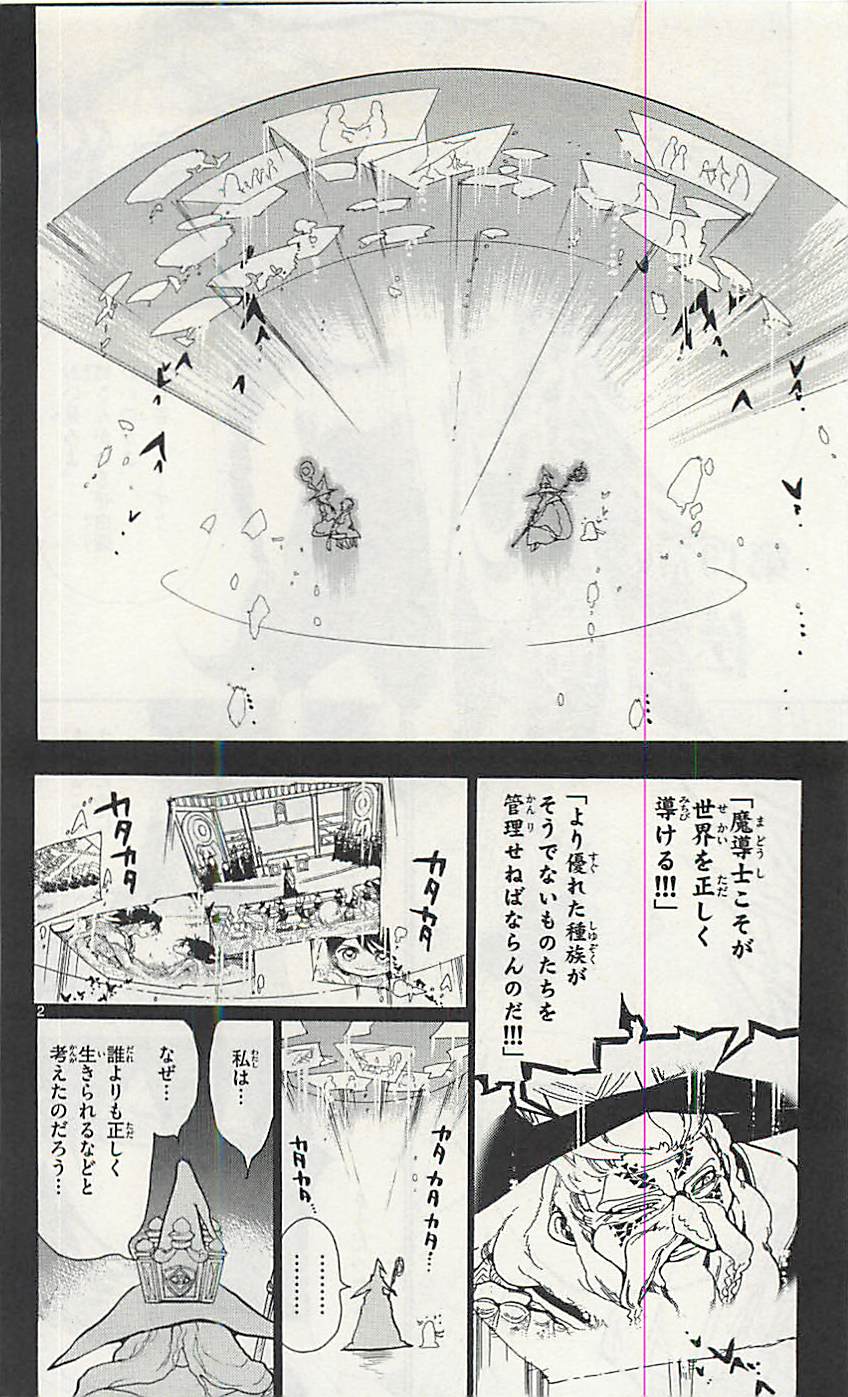 「魔導士こそが
世界を正しく
導ける!!!」
「より優れた種族が
そうでないものたちを
管理せねばならんのだ!!!」
カタカタ
カタカタ
カタカタカタ…
カタカタ…
…………
…………
私は…
なぜ…
誰よりも正しく
生きられるなどと
考えたのだろう…
2